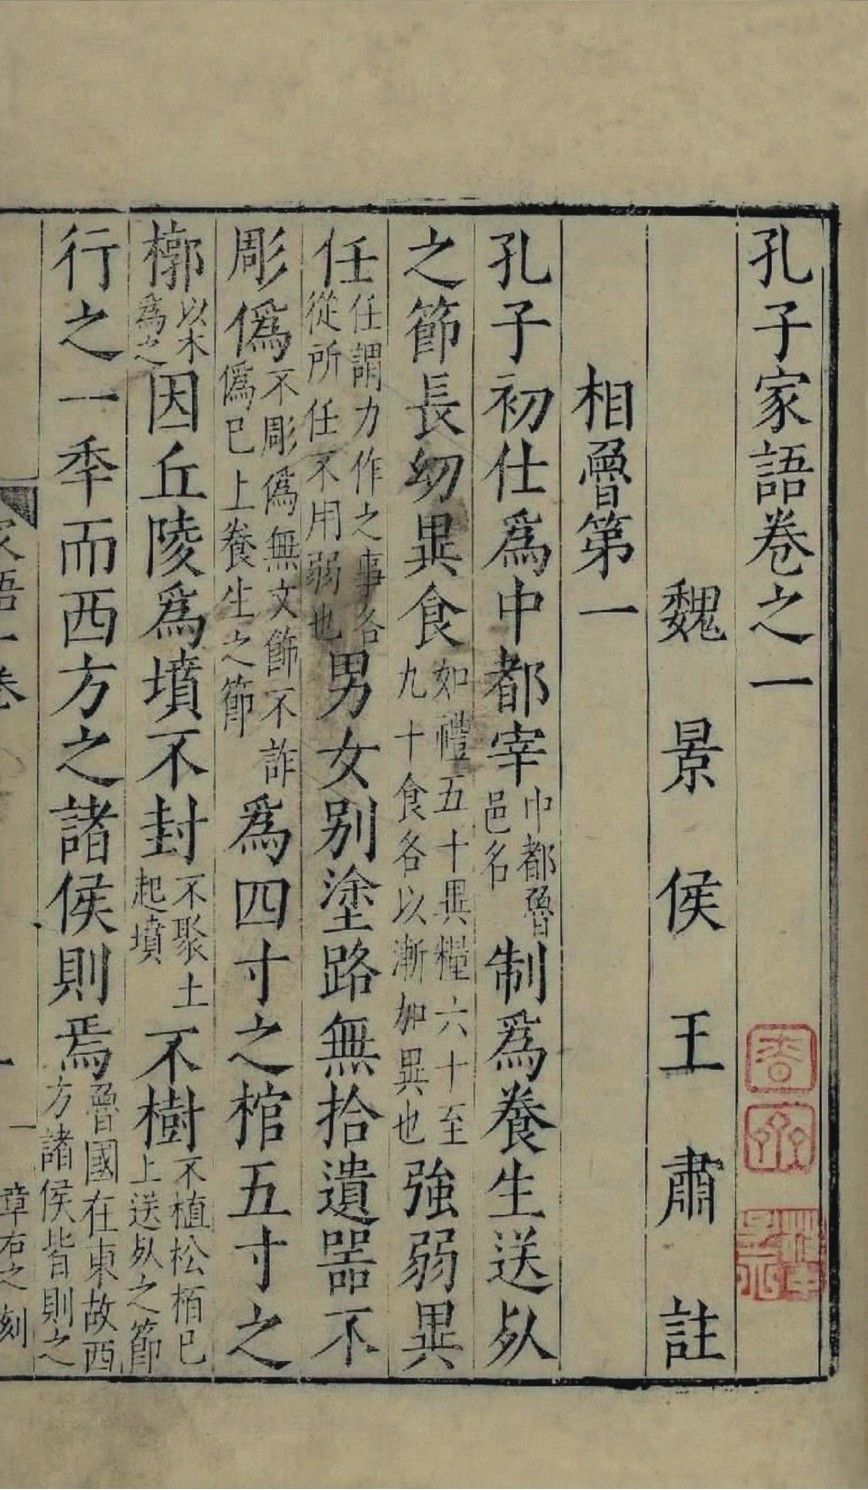 孔子家語卷之一
魏景侯王肅註
相魯第一
孔子初仕爲中都宰中都魯邑名制爲養生送死
之節長幼異食如禮五十異糧六十至九十食各以漸加異也強弱異
任任謂力作之事各從所任不用弱也男女别塗路無拾遺器不
彫僞不彫僞無文飾不詐僞已上養生之節爲四寸之棺五寸之
槨以木爲之因丘陵爲墳不封不聚土起墳不樹不植松栢已上送死之節
行之一秊而西方之諸侯則焉魯國在東故西方諸侯皆則之
家語一卷
一
章右之刻